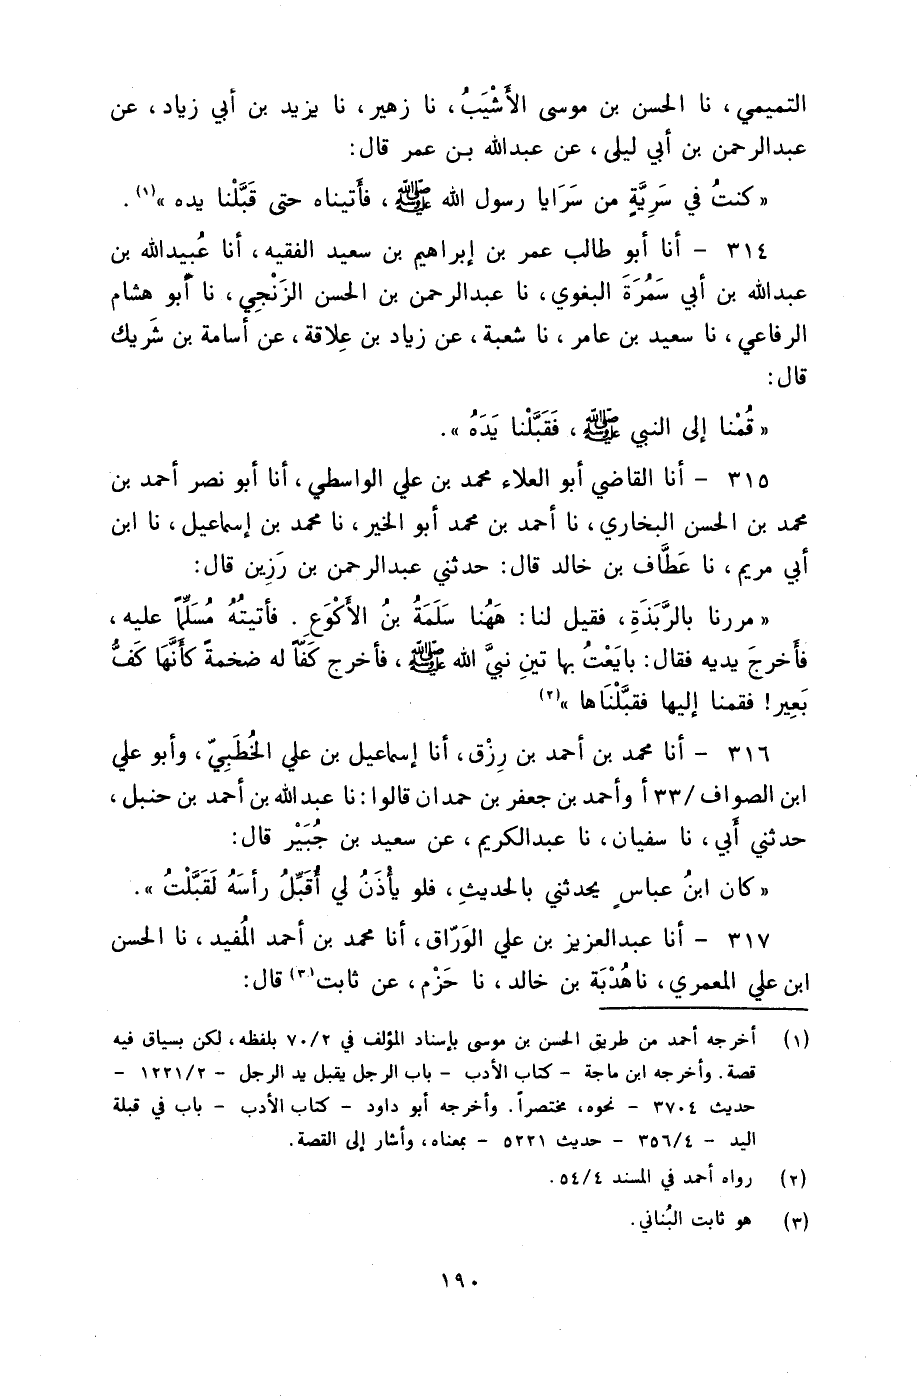 التميمي، نا الحسن بن موسى الأَشْيَبُ، نا زهير، نا يزيد بن أبي زياد، عن
عبدالرحمن بن أبي ليلى، عن عبدالله بن عمر قال:
«كنتُ في سَرِيَّةٍ من سَرَايا رسول الله ﷺ، فأَتيناه حتى قَبَّلْنا يده»(١).
٣١٤ - أنا أبو طالب عمر بن إبراهيم بن سعيد الفقيه، أنا عُبيدالله بن
عبدالله بن أبي سَمُرَةَ البغوي، نا عبدالرحمن بن الحسن الزَنْجِي، نا أبو هشام
الرفاعي، نا سعيد بن عامر، نا شعبة، عن زياد بن عِلاقة، عن أسامة بن شَريك
قال:
«قُمْنا إلى النبي ﷺ، فَقَبَّلْنا يَدَهُ».
٣١٥ - أنا القاضي أبو العلاء محمد بن علي الواسطي، أنا أبو نصر أحمد بن
محمد بن الحسن البخاري، نا أحمد بن محمد أبو الخير، نا محمد بن إسماعيل، نا ابن
أبي مريم، نا عَطَّاف بن خالد قال: حدثني عبدالرحمن بن رَزِين قال:
«مررنا بالرَّبَذَةِ، فقيل لنا: هَهُنا سَلَمَةُ بنُ الأَكْوَعِ. فأتيتُهُ مُسَلِّماً عليه،
فأَخرجَ يديه فقال: بايَعْتُ بها تينِ نبيَّ الله ﷺ، فأخرج كَفّاً له ضخمةً كأَنَّهَا كَفُّ
بَعِير! فقمنا إليها فقبَّلْنَاها»(٢)
٣١٦ - أنا محمد بن أحمد بن رِزْق، أنا إسماعيل بن علي الخُطَبِيّ، وأبو علي
ابن الصواف/٣٣أ وأحمد بن جعفر بن حمدان قالوا: نا عبدالله بن أحمد بن حنبل،
حدثني أَبي، نا سفيان، نا عبدالكريم، عن سعيد بن جُبَيْر قال:
«كان ابنُ عباسٍ يحدثني بالحديثِ، فلو يأْذَنُ لي أُقَبِّلُ رأسَهُ لَقَبَّلْتُ».
٣١٧ - أنا عبدالعزيز بن علي الوَرّاق، أنا محمد بن أحمد المُفيد، نا الحسن
ابن علي المعمري، نا هُدْبَة بن خالد، نا حَزْم، عن ثابت(٣) قال:
(١) أخرجه أحمد من طريق الحسن بن موسى بإسناد المؤلف في ٧٠/٢ بلفظه، لكن بسياق فيه
قصة. وأخرجه ابن ماجة - كتاب الأدب - باب الرجل يقبل يد الرجل - ١٢٢١/٢ -
حديث ٣٧٠٤ - نحوه، مختصراً. وأخرجه أبو داود - كتاب الأدب - باب في قبلة
اليد - ٣٥٦/٤ - حديث ٥٢٢١ - بمعناه، وأشار إلى القصة.
(٢) رواه أحمد في المسند ٥٤/٤.
(٣) هو ثابت البُناني.
١٩٠